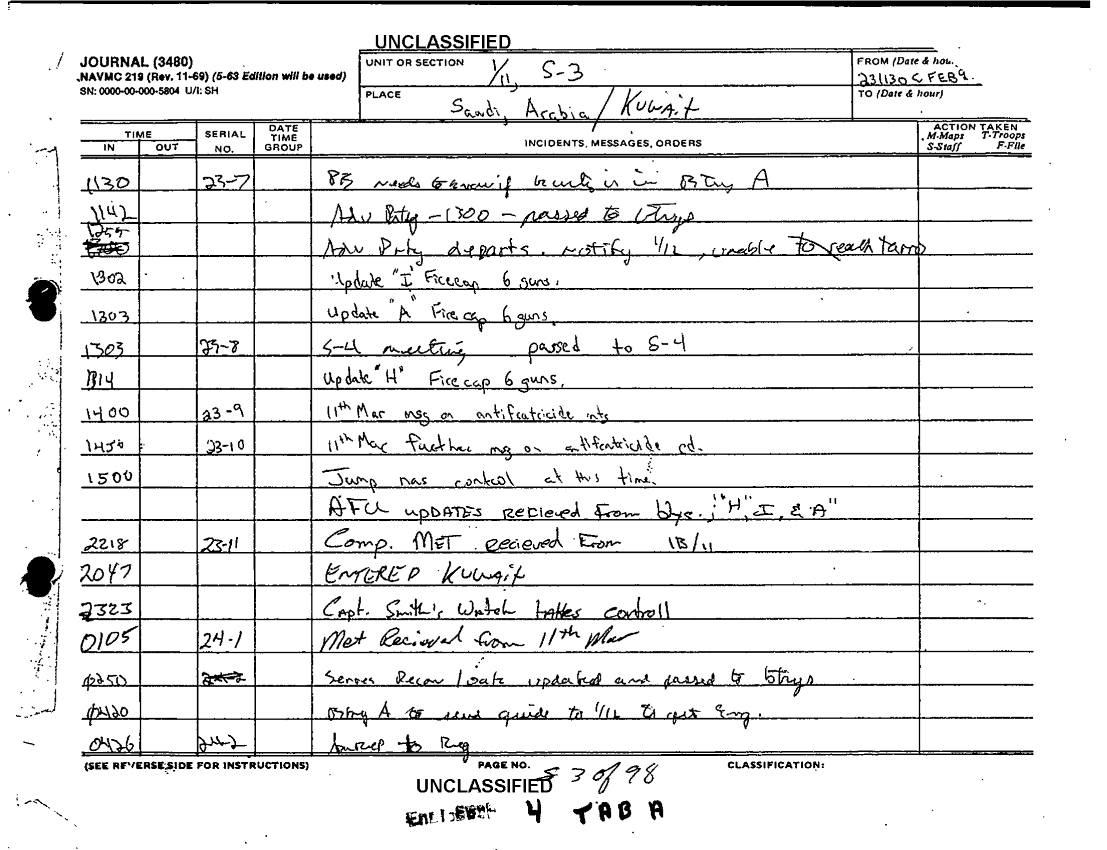 UNCLASSIFIED
JOURNAL (3480)
NAVMC 219 (Rev. 11-69) (5-63 Edition will be used)
SN: 0000-00-000-5804 U/I: SH
UNIT OR SECTION
1/11, S-3
FROM (Date & hou.
231130 C FEB 9
PLACE
Saudi Arabia / Kuwait
TO (Date & hour)
TIME
IN OUT
SERIAL NO.
DATE TIME GROUP
INCIDENTS, MESSAGES, ORDERS
ACTION TAKEN
M-Maps T-Troops
S-Staff F-File
1130 23-7 needs to know if is in Btry A
1142 Adv Prty - 1300 - passed to btrys
1255 Adv Prty departs. Notify 1/12, unable to reach
1302 Update "I" Firecap 6 guns.
1303 Update "A" Firecap 6 guns.
1303 23-8 S-4 meeting passed to S-4
1314 Update "H" Firecap 6 guns.
1400 23-9 11th Mar msg on antifratricide
23-10 11th Mar further msg on antifratricide
1500 Jump has control at this time.
AFU UPDATES RECIEVED From "H", I, & A"
2218 23-11 Comp. MET recieved From 1B/11
2047 ENTERED KUWAIT
2323 Capt. Smith's Watch takes controll
0105 24-1 Met Recieved from 11th Mar
0250 Recon updated and passed to btrys
0420 Btry A to send guide to 1/12 to get Eng.
0426 24-2 to Reg
(SEE REVERSE SIDE FOR INSTRUCTIONS)
PAGE NO.
3 of 98
CLASSIFICATION:
UNCLASSIFIED
4 TAB A